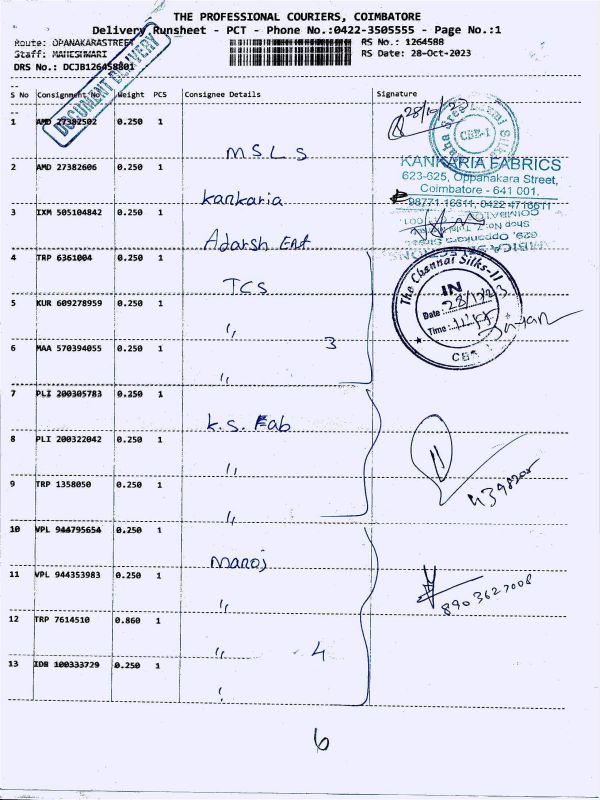 THE PROFESSIONAL COURIERS, COIMBATORE
Delivery Runsheet - PCT - Phone No.:0422-3505555 - Page No.:1
Route: OPANAKARASTREET
RS No.: 1264588
Staff: MAHESHWARI
RS Date: 28-Oct-2023
DRS No.: DCJB126458801
DOCUMENT DELIVERY
S No Consignment No Weight PCS Consignee Details Signature
1 AMD 27382502 0.250 1 M.S.L.S
28/10/23
CBE-1
2 AMD 27382606 0.250 1 Kankaria
KANKARIA FABRICS
623-625, Oppanakara Street,
Coimbatore - 641 001.
98771 16611, 0422 4716611
3 IXM 505104842 0.250 1 Adarsh Ent
4 TRP 6361004 0.250 1 TCS
The Chennai Silks-II
IN
Date :
Time :
5 KUR 609278959 0.250 1 ''
6 MAA 570394055 0.250 1 ''
3
7 PLI 200305783 0.250 1 K.S. Fab
8 PLI 200322042 0.250 1 ''
9 TRP 1358050 0.250 1 ''
10 VPL 944795654 0.250 1 Manoj
11 VPL 944353983 0.250 1 ''
8903627008
12 TRP 7614510 0.860 1 ''
4
13 IDR 100333729 0.250 1
6